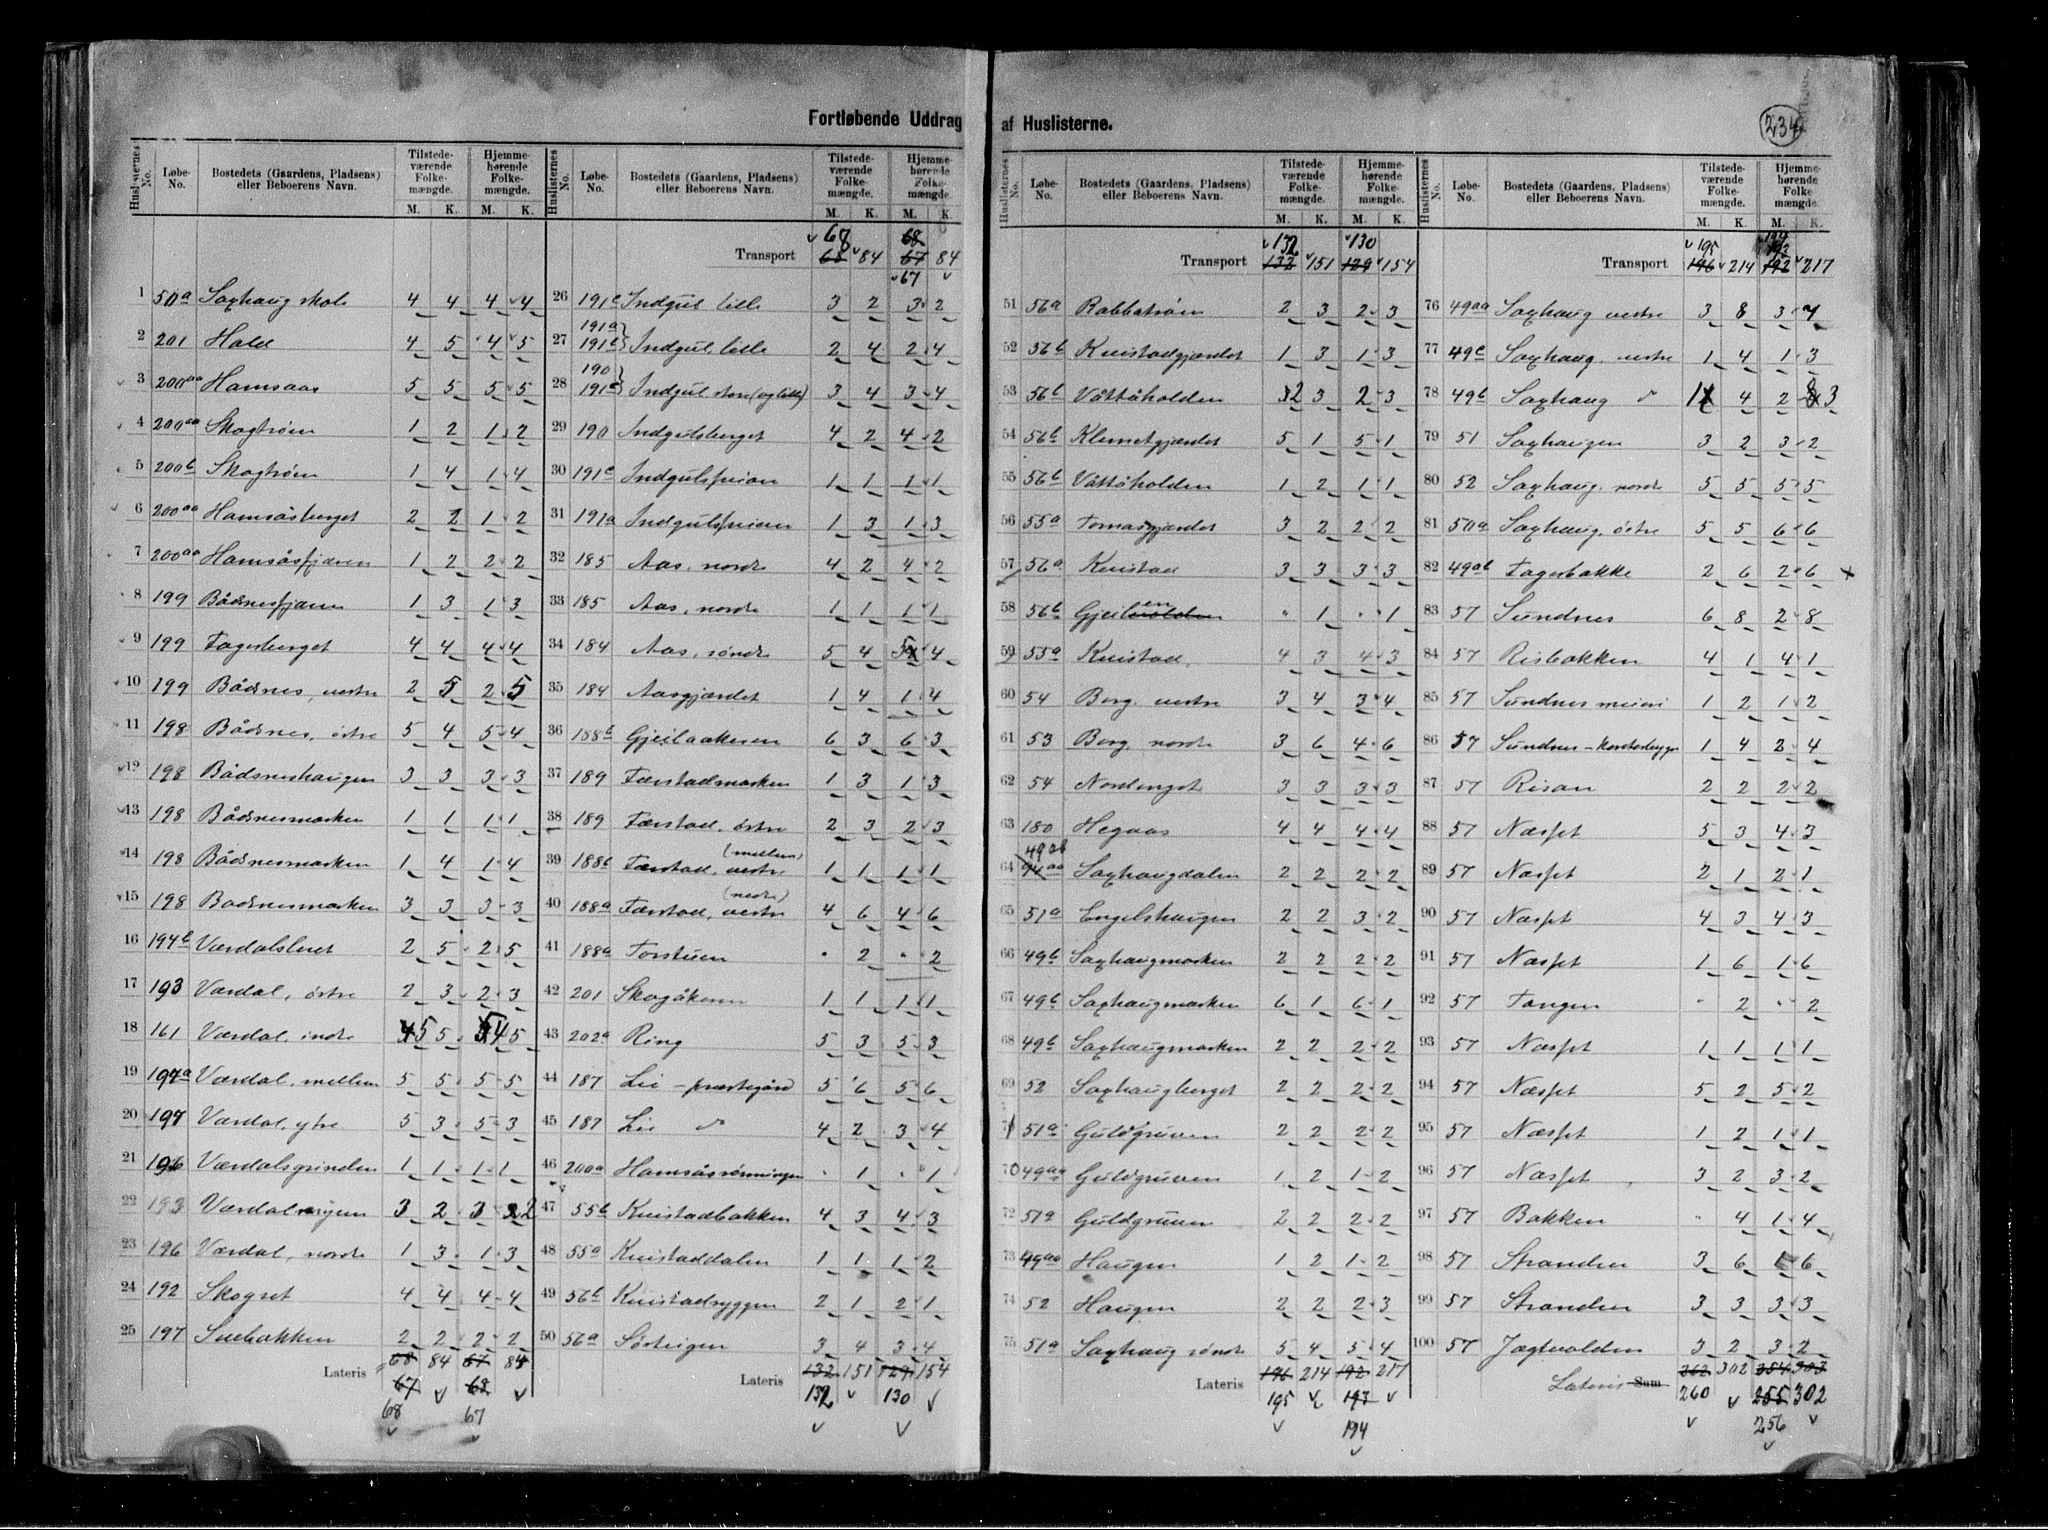 Fortløbende Uddrag af Huslisterne.
234
Huslisternes No. Løbe-No. Bostedets (Gaardens, Pladsens) eller Beboerens Navn. Tilstedeværende Folkemængde. M. K. Hjemmehørende Folkemængde. M. K.
1 50a Saxhaug skole 4 4 4 4
2 201 Hald 4 5 4 5
3 200aa Hamsaas 5 5 5 5
4 200aa Skogtrøen 1 2 1 2
5 200b Skogtrøen 1 4 1 4
6 200aa Hamsåsberget 2 2 1 2
7 200aa Hamsåsfjæren 1 2 2 2
8 199 Bådsnesfjæren 1 3 1 3
9 199 Fagerberget 4 4 4 4
10 199 Bådsnes, vestre 2 5 2 5
11 198 Bådsnes, østre 5 4 5 4
12 198 Bådsneshaugen 3 3 3 3
13 198 Bådsnesmarken 1 1 1 1
14 198 Bådsnesmarken 1 4 1 4
15 198 Badsnesmarken 3 3 3 3
16 194b Værdalsleret 2 5 2 5
17 193 Værdal, østre 2 3 2 3
18 161 Værdal, indre 5 5 4 5
19 194a Værdal, mellem 5 5 5 5
20 197 Værdal, ytre 5 3 5 3
21 196 Værdalsgrinden 1 1 1 1
22 193 3 2 3 2
23 196 Værdal, nordre 1 3 1 3
24 192 Skogset 4 4 4 4
25 197 Svebakken 2 2 2 2
Lateris 68 84 67 84
67 68
68 67
Huslisternes No. Løbe-No. Bostedets (Gaardens, Pladsens) eller Beboerens Navn. Tilstedeværende Folkemængde. M. K. Hjemmehørende Folkemængde. M. K.
67 68
Transport 68 84 67 84
67
26 191c Indgul lille 3 2 3 2
27 191a 191b Indgul, lille 2 4 2 4
28 190 191c Indgul store (og lille) 3 4 3 4
29 190 Indgulsberget 4 2 4 2
30 191c Indgulsfveien 1 1 1 1
31 191a Indgulsfveien 1 3 1 3
32 185 Aas, nordre 4 2 4 2
33 185 Aas, nordre 1 1 1 1
34 184 Aas, søndre 5 4 5 4
35 184 Aasgjærdet 1 4 1 4
36 188b Gjeilaakeren 6 3 6 3
37 189 Færstadmarken 1 3 1 3
38 189 Færstad, østre 2 3 2 3
39 188b Færstad, vestre (mellem) 1 1 1 1
40 188a Færstad, vestre (nedre) 4 6 4 6
41 188a Forstuen " 2 " 2
42 201 Skogåkeren 1 1 1 1
43 202a Ring 5 3 5 3
44 187 Lie - præstegård 5 6 5 6
45 187 Lie do 4 2 3 4
46 200a Hamsåsrønningen " 1 " 1
47 55b Kvistadbakken 4 3 4 3
48 55a Kvistaddalen 1 1 1 2
49 56b Kvistadryggen 2 1 2 1
50 56a Sørsteigen 3 4 3 4
Lateris 132 151 129 154
132 130
Huslisternes No. Løbe-No. Bostedets (Gaardens, Pladsens) eller Beboerens Navn. Tilstedeværende Folkemængde. M. K. Hjemmehørende Folkemængde. M. K.
132 130
Transport 132 151 129 154
51 56a Rabbatrøen 2 3 2 3
52 56b Kvistadgjærdet 1 3 1 3
53 56b Våttåholden 2 3 2 3
54 56b Klemetgjærdet 5 1 5 1
55 56b Våttåholden 1 2 1 1
56 55a Tomasgjærdet 3 2 2 2
57 56a Kvistad 3 3 3 3
58 56b Gjeilen " 1 " 1
59 55a Kvistad, 4 3 4 3
60 54 Borg, vestre 3 4 3 4
61 53 Borg, nordre 3 6 4 6
62 54 Nordenget 3 3 3 3
63 180 Hegaas 4 4 4 4
64 49a Saxhaugdalen 2 2 2 2
65 51a Engelshaugen 2 2 3 2
66 49b Saxhaugmarken 2 2 2 2
67 49b Saxhaugmarken 6 1 6 1
68 49b Saxhaugmarken 2 2 2 2
69 52 Saxhaugberget 2 2 2 2
71 51a Guldgruven 2 2 2 2
70 49aa Guldgruven 1 2 1 2
72 51a Guldgruven 2 2 2 2
73 49aa Haugen 1 2 1 2
74 52 Haugen 2 2 2 3
75 51a Saxhaug søndre 5 4 5 4
Lateris 196 214 192 217
195 193
194
Huslisternes No. Løbe-No. Bostedets (Gaardens, Pladsens) eller Beboerens Navn. Tilstedeværende Folkemængde. M. K. Hjemmehørende Folkemængde. M. K.
195 194
Transport 196 214 192 217
76 49aa Saxhaug vestre 3 8 3 7
77 49c Saxhaug, vestre 1 4 1 3
78 49b Saxhaug do 1 4 2 3
79 51 Saxhaugen 3 2 3 2
80 52 Saxhaug, nordre 5 5 5 5
81 50a Saxhaug, østre 5 5 6 6
82 49ab Fagerbakke 2 6 2 6
83 57 Sundnes 6 8 2 8
84 57 Risbakken 4 1 4 1
85 57 Sundnes meieri 1 2 1 2
86 57 Sundnes - 1 4 2 4
87 57 Risan 2 2 2 2
88 57 Næsset 5 3 4 3
89 57 Næsset 2 1 2 1
90 57 Næsset 4 3 4 3
91 57 Næsset 1 6 1 6
92 57 Tangen " 2 " 2
93 57 Næsset 1 1 1 1
94 57 Næsset 5 2 5 2
95 57 Næsset 1 2 1 1
96 57 Næsset 3 2 3 2
97 57 Bakken " 4 1 4
98 57 Stranden 3 6 1 6
99 57 Stranden 3 3 3 3
100 57 Jagtvolden 3 2 3 2
Lateris Sum 262 302 254 303
260 255 302
256